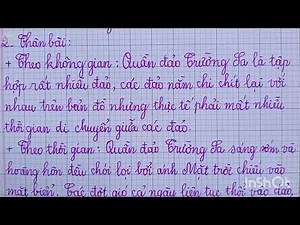 2. Thân bài:
+ Theo không gian: Quần đảo Trường Sa là tập
hợp rất nhiều đảo, các đảo nằm chi chít lại với
nhau trên bản đồ nhưng thực tế phải mất nhiều
thời gian di chuyển giữa các đảo.
+ Theo thời gian: Quần đảo Trường Sa sáng sớm và
hoàng hôn đều chói lọi bởi ánh Mặt trời chiếu vào
mặt biển. Các đợt gió cả ngày liên tục thổi vào đảo,
InShOt